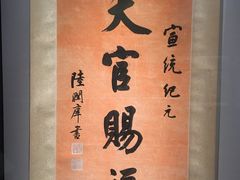 宣統紀元
天官賜福
陸潤庠書